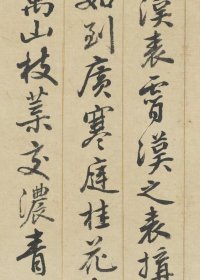 漢表霄漢之表
如到廣寒庭桂花
萬山枝葉交濃青